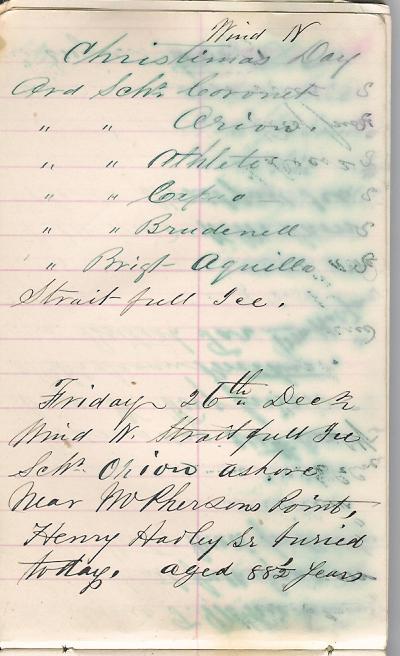 Wind N
Christmas Day
Ard Schr Coronet
" " Orion.
" " Athlete
" "
" " Brudenell
" Brigt Aquilla
Strait full Ice.
Friday 26th Decr
Wind N. Strait full Ice
Schr Orion ashore
Near McPhersons Point,
Henry Hadley Sr buried
today. aged 88½ years